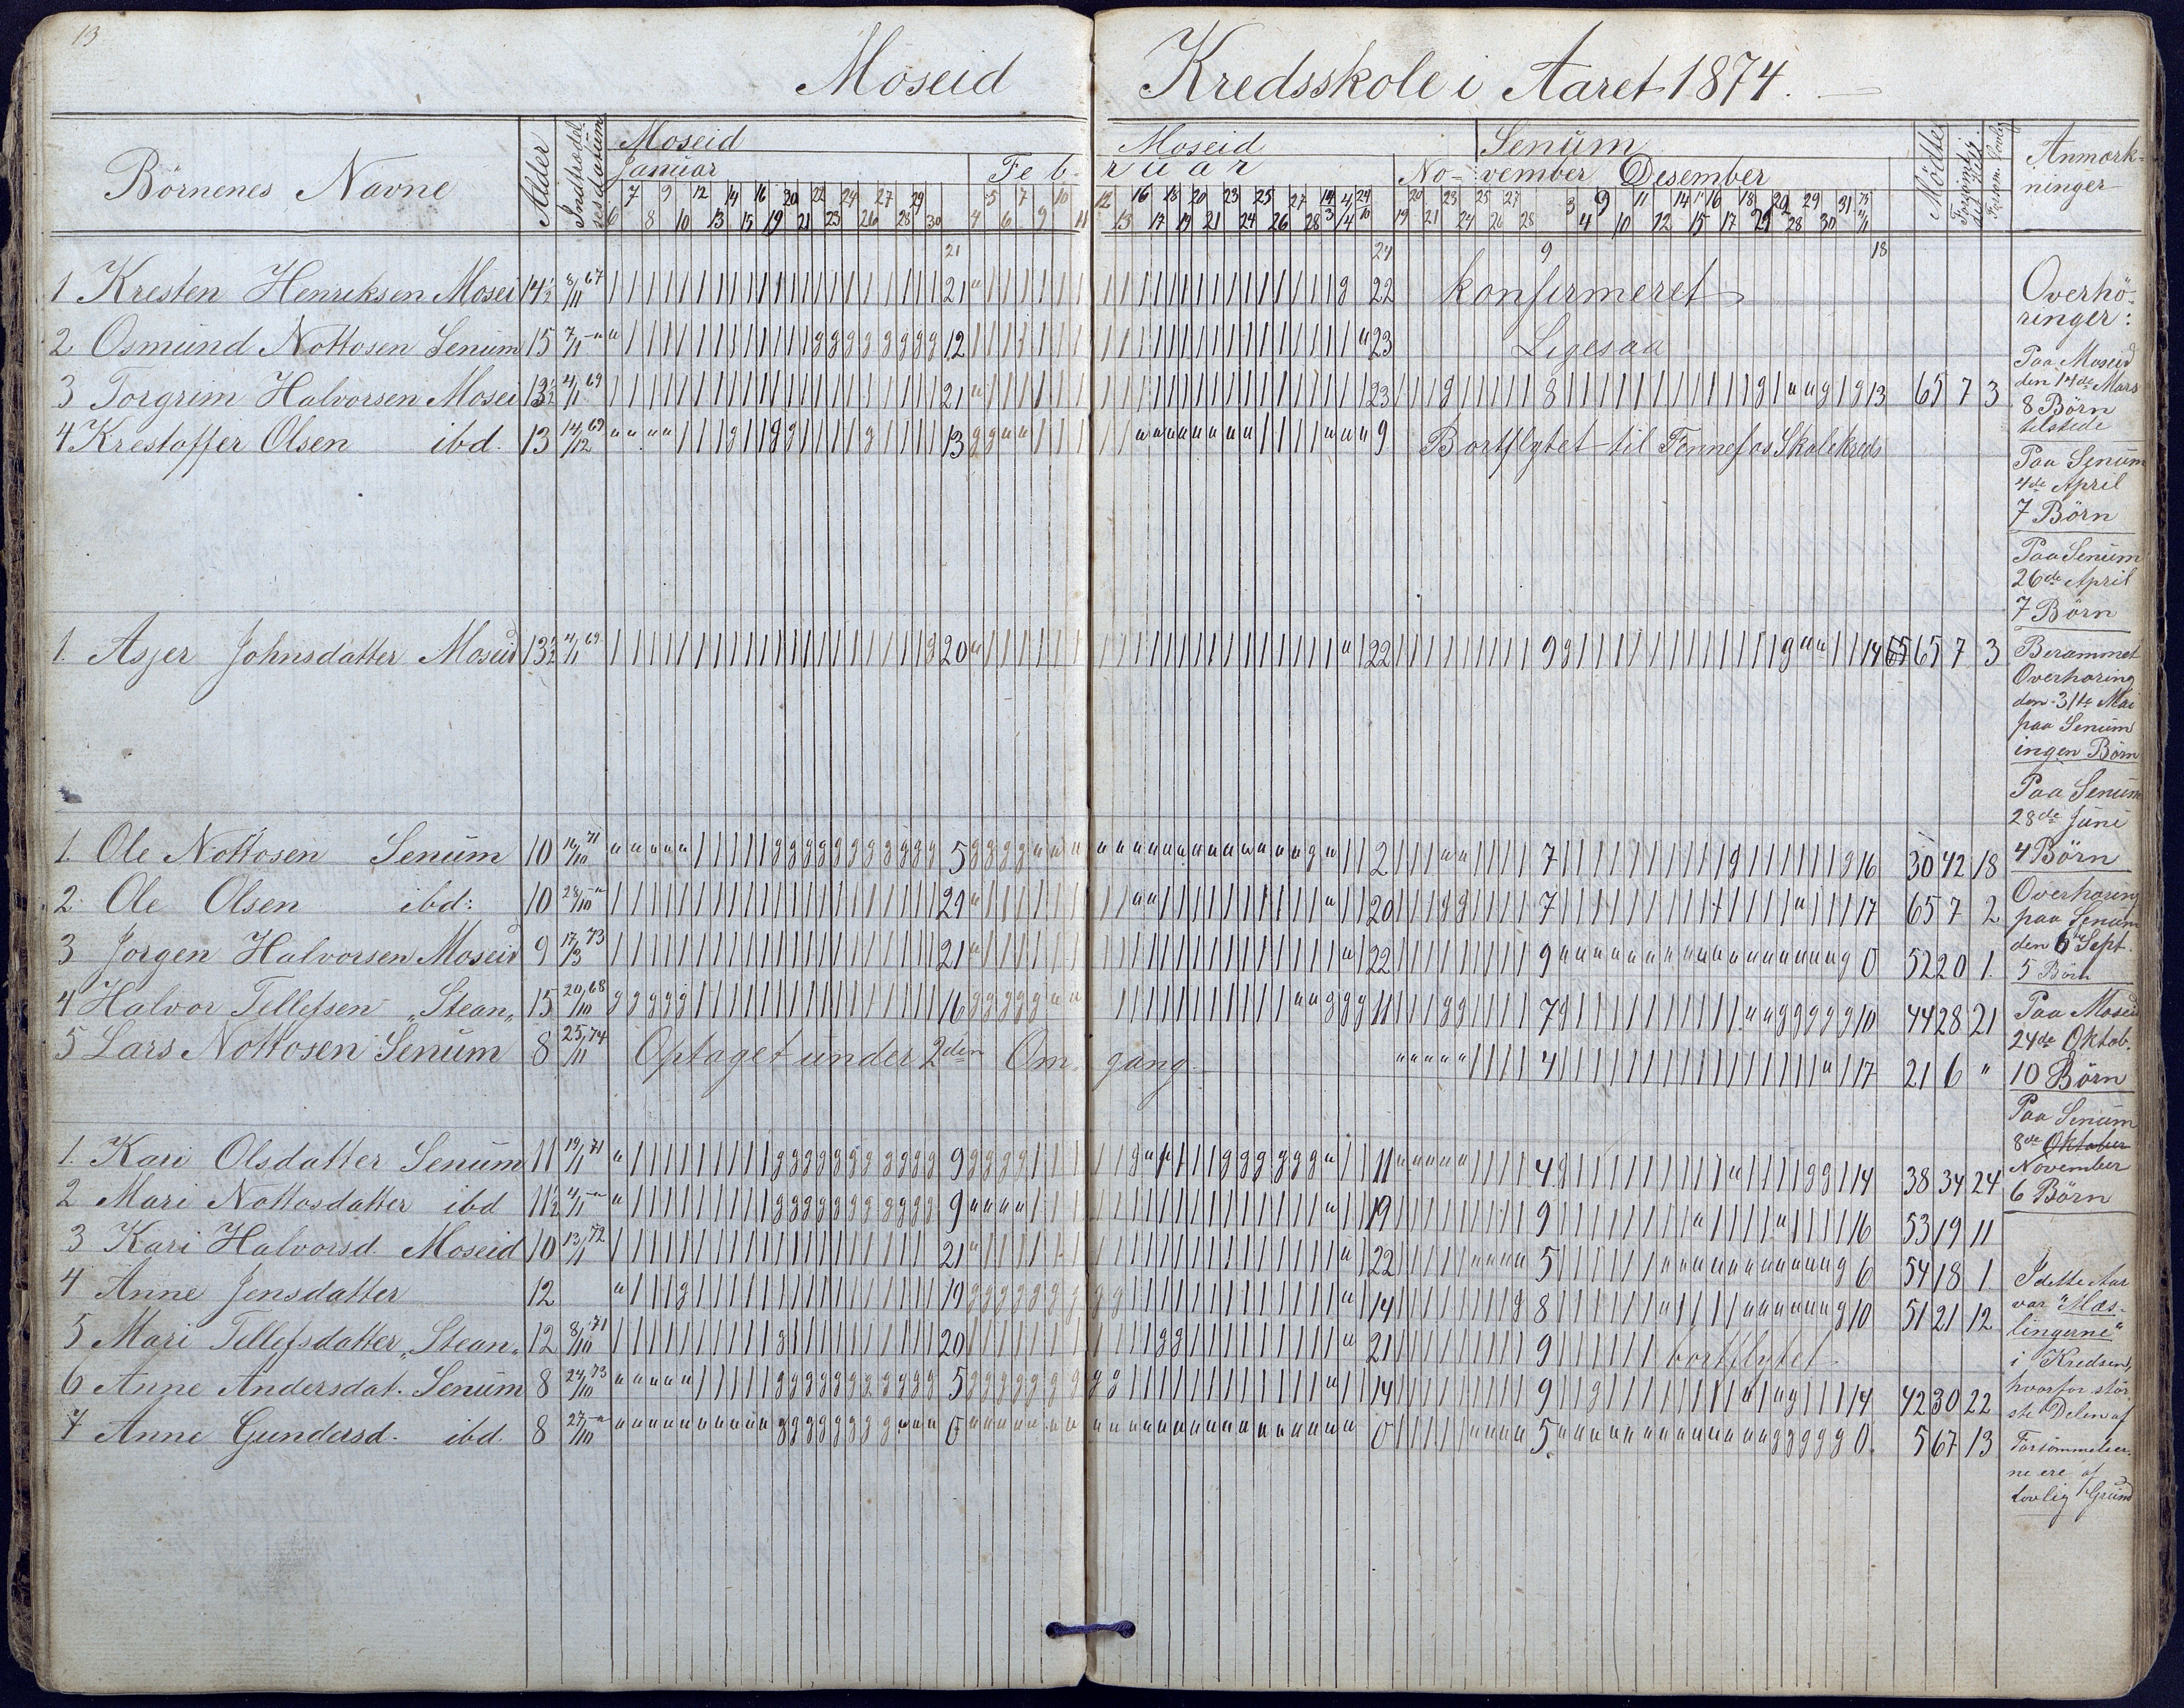 13
Moseid Kredsskole i Aaret 1874.
Börnenes Navne Alder Indtrædelsesdatum Moseid Moseid Senum Mödte Anmærk-
Januar Feb- ruar No- vember Desember ninger
7 9 12 14 16 20 22 24 27 29 5 7 10 12 16 18 20 23 25 27 14/3 4/4 24/10 20 23 25 27 3 9 11 14 16 18 29 31
6 8 10 13 15 19 21 23 26 28 30 4 6 9 11 13 17 19 21 24 26 28 19 21 24 26 28 4 10 12 15 17 21 28 30
21 24 9 18
1 Kresten Henriksen Mosei 14½ 8/11 67 21 22 konfirmeret
2 Osmund Nottosen Senum 15 7/1 -"- 12 23 Ligesaa
3 Torgrim Halvorsen Mosei 13½ 4/1 69 21 23 8 13 65 7 3
4 Krestoffer Olsen ibd. 13 14/12 69 13 9 Bortflytet til Fennefos Skolekreds
1. Asjer Johnsdatter Moseid 13½ 4/1 69. 20 22 9 14 65 7 3
1. Ole Nottosen Senum 10 16/10 71 5 2 7 16 30 42 18
2. Ole Olsen ibd: 10 28/10 -"- 21 20 7 17 65 7 2
3 Jorgen Halvorsen Moseid 9 17/13 73 21 22 9 0 52 20 1.
4 Halvor Tellefsen "Stean" 15 20/10 68 16 11 7 10 44 28 21
5 Lars Nottosen Senum 8 25/11 74 Optaget under 2den Omgang. 4 17 21 6 "
1. Kari Olsdatter Senum 11 19/1 71 9 11 4 14 38 34 24
2 Mari Nottosdatter ibd 11½ 4/1 -"- 9 19 9 16 53 19 11
3 Kari Halvorsd. Moseid 10 13/1 72 21 22 5 6 54 18 1.
4 Anne Jensdatter 12 19 14 8 10 51 21 12
5 Mari Tellefsdatter "Stean" 12 8/10 71 20 21 9 bortflytet
6 Anne Andersdat. Senum 8 24/10 73 5 14 9 14 42 30 22
7 Anne Gundersd. ibd. 8 27/10 -"- 0 0 5 0. 5 67 13
Overhö-
ringer:
Paa Moseid
den 14de Mars
8 Börn
tilstede
Paa Senum
4de April
7 Börn
Paa Senum
26de April
7 Börn
Berammet
Overhøring
den 31te Mai
paa Senum
ingen Börn
Paa Senum
28de Juni
4 Börn
Overhoring
paa Senum
den 6te Sept.
5 Börn
Paa Moseid
24de Oktob.
10 Börn
Paa Senum
8de Oktober
November
6 Börn
I dette Aar
var "Mæs-
lingerne"
i Kredsen,
hvorfor stör-
ste Delen af
Forsömmelser-
ne ere af
lovlig Grund